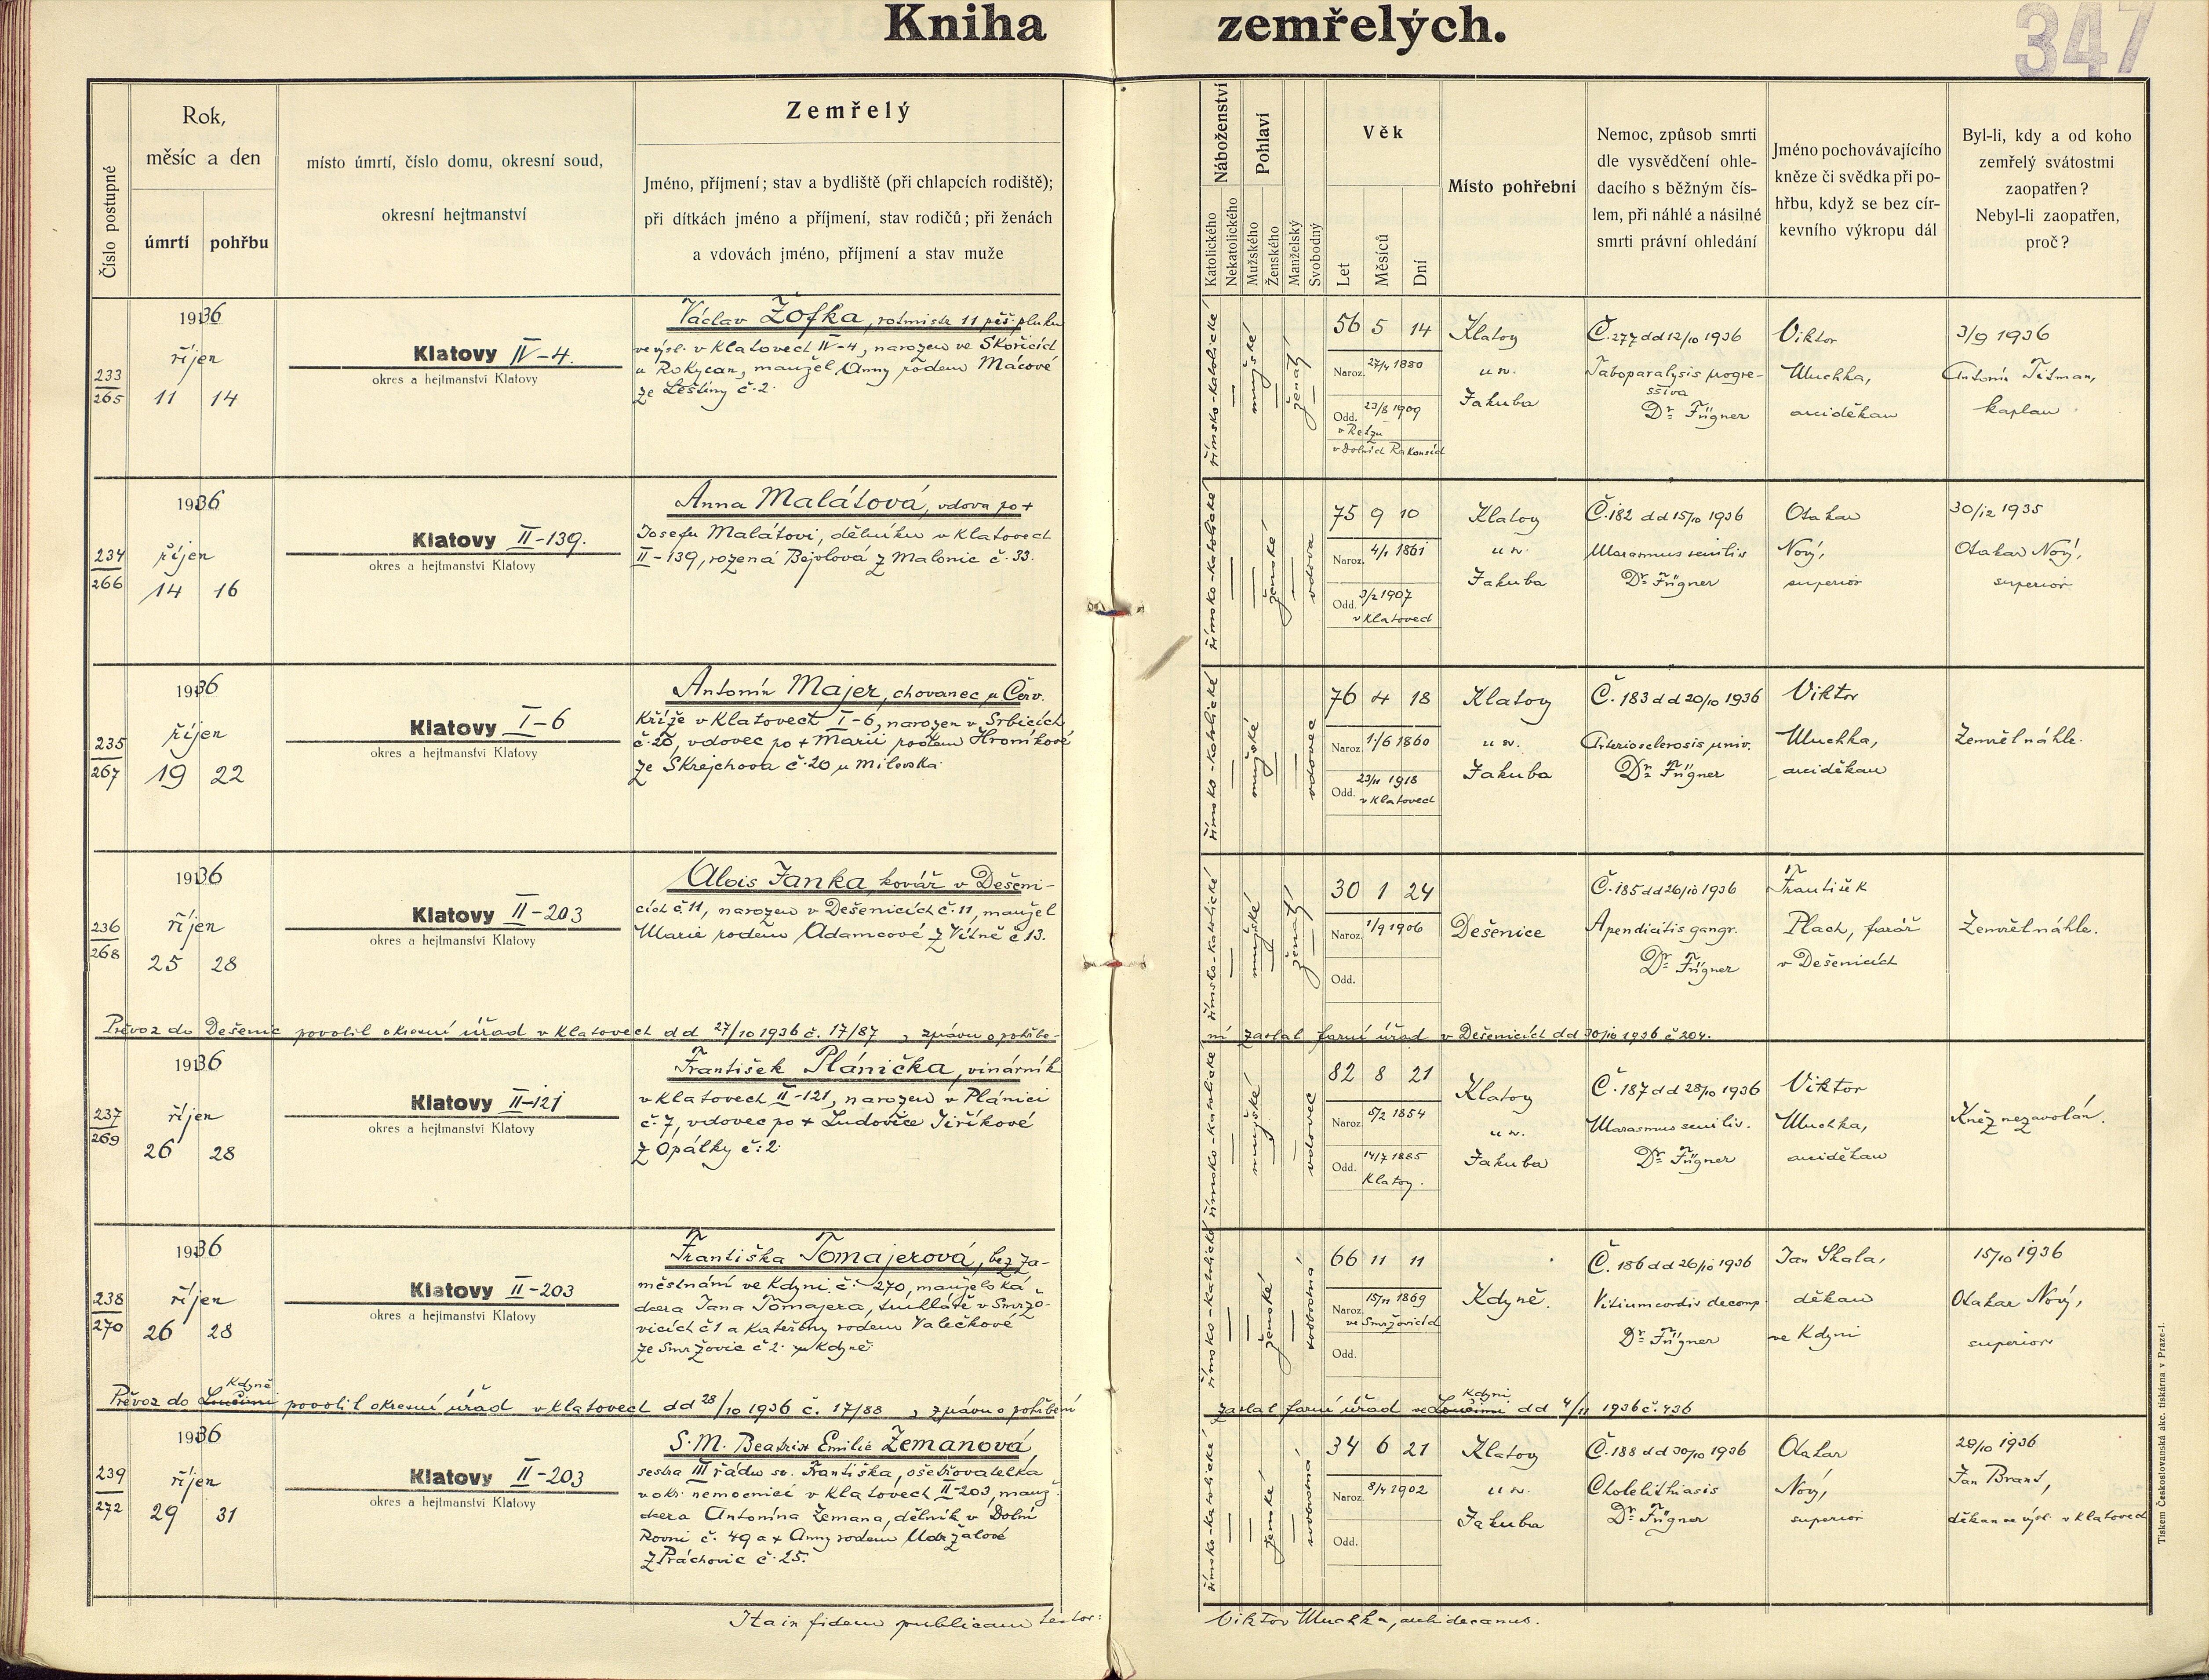 Kniha zemřelých.
347
Číslo postupné
Rok,
měsíc a den
úmrtí pohřbu
místo úmrtí, číslo domu, okresní soud,
okresní hejtmanství
Zemřelý
Jméno, příjmení; stav a bydliště (při chlapcích rodiště);
při dítkách jméno a příjmení, stav rodičů; při ženách
a vdovách jméno, příjmení a stav muže
Náboženství
Katolického
Nekatolického
Pohlaví
Mužského
Ženského
Manželský
Svobodný
Věk
Let
Měsíců
Dní
Místo pohřební
Nemoc, způsob smrti
dle vysvědčení ohle-
dacího s běžným čís-
lem, při náhlé a násilné
smrti právní ohledání
Jméno pochovávajícího
kněze či svědka při po-
hřbu, když se bez cír-
kevního výkropu dál
Byl-li, kdy a od koho
zemřelý svátostmi
zaopatřen?
Nebyl-li zaopatřen,
proč?
233
265
1936
říjen
11 14
Klatovy IV-4.
okres a hejtmanství Klatovy
Václav Žofka, rotmistr 11 pěš. pluku
ve výsl. v Klatovech IV-4, narozen ve Skořicích
u Rokycan, manžel Anny rodem Mácové
ze Leštiny č. 2.
římsko-katolické
mužské
ženatý
56 5 14
Naroz. 27/4 1880
Odd. 23/8 1909
v Retzu
v Dolních Rakousích
Klatovy
u sv.
Jakuba
Č. 277 dd 12/10 1936
Taboparalysis progre-
ssiva
Dr. Fügner
Viktor
Muchka,
arciděkan
3/9 1936
Antonín Titman,
kaplan
234
266
1936
říjen
14 16
Klatovy II-139.
okres a hejtmanství Klatovy
Anna Malátová, vdova po +
Josefu Malátovi, dělníku v Klatovech
II-139, rozená Bejvlová z Malonic č. 33.
římsko-katolické
ženské
vdova
75 9 10
Naroz. 4/1 1861
Odd. 3/2 1907
v Klatovech
Klatovy
u sv.
Jakuba
Č. 182 dd 15/10 1936
Marasmus senilis
Dr. Fügner
Otakar
Nový,
superior
30/12 1935
Otakar Nový,
superior
235
267
1936
říjen
19 22
Klatovy I-6
okres a hejtmanství Klatovy
Antonín Majer, chovanec u Červ.
Kříže v Klatovech I-6, narozen v Srbicích
č. 20, vdovec po + Marii rodem Hroníkové
ze Skrejchova č. 20 u Milevska
římsko-katolické
mužské
vdovec
76 4 18
Naroz. 1/6 1860
Odd. 23/11 1918
v Klatovech
Klatovy
u sv.
Jakuba
Č. 183 dd 20/10 1936
Arteriosclerosis univ.
Dr. Fügner
Viktor
Muchka,
arciděkan
Zemřel náhle.
236
268
1936
říjen
25 28
Klatovy II-203
okres a hejtmanství Klatovy
Alois Janka, kovář v Dešeni-
cích č. 11, narozen v Dešenicích č. 11, manžel
Marie rodem Adamcové z Vítně č 13.
římsko-katolické
mužské
ženatý
30 1 24
Naroz. 1/9 1906
Odd.
Dešenice
Č. 185 dd 26/10 1936
Apendicitis gangr.
Dr. Fügner
František
Plach, farář
v Dešenicích
Zemřel náhle.
Převoz do Dešenic povolil okresní úřad v Klatovech dd 27/10 1936 č. 17/87, zprávu o pohřbe-
ní zaslal farní úřad v Dešenicích dd 30/10 1936 č 204.
237
269
1936
říjen
26 28
Klatovy II-121
okres a hejtmanství Klatovy
František Plánička, vinárník
v Klatovech II-121, narozen v Plánici
č. 7, vdovec po + Ludovice Jiříkové
z Opálky č: 2.
římsko-katolické
mužské
vdovec
82 8 21
Naroz. 5/2 1854
Odd. 14/7 1885
Klatovy.
Klatovy
u sv.
Jakuba
Č. 187 dd 28/10 1936
Marasmus senilis.
Dr. Fügner
Viktor
Muchka,
arciděkan
Kněz nezavolán.
238
270
1936
říjen
26 28
Klatovy II-203
okres a hejtmanství Klatovy
Františka Tomajerová, bez za-
městnání ve Kdyni č. 270, manželská
dcera Jana Tomajera, truhláře v Smržo-
vicích č 1 a Kateřiny rodem Valečkové
ze Smržovic č 2. u Kdyně
římsko-katolické
ženské
svobodná
66 11 11
Naroz. 15/11 1869
ve Smržovicích
Odd.
Kdyně.
Č. 186 dd 26/10 1936
Vitium cordis decomp.
Dr. Fügner
Jan Skala,
děkan
ve Kdyni
15/10 1936
Otakar Nový,
superior
Kdyně
Převoz do Loučimi povolil okresní úřad v Klatovech dd 28/10 1936 č. 17/88, zprávu o pohřbení
Kdyni
zaslal farní úřad ve Loučimi dd 4/11 1936 č. 436
239
272
1936
říjen
29 31
Klatovy II-203
okres a hejtmanství Klatovy
S. M. Beatrix Emilie Zemanová,
sestra III řádu sv. Františka, ošetřovatelka
v okr. nemocnici v Klatovech II-203, manž.
dcera Antonína Zemana, dělník v Dolní
Rovni č. 49 a + Anny rodem Udržalové
z Práchovic č. 25.
římsko-katolické
ženské
svobodná
34 6 21
Naroz. 8/4 1902
Odd.
Klatovy
u sv.
Jakuba
Č. 188 dd 30/10 1936
Cholelithiasis
Dr. Fügner
Otakar
Nový,
superior
28/10 1936
Jan Brant,
děkan ve výsl. v Klatovech
Ita in fidem publicam testor: Viktor Muchka, archidecanus.
Tiskem Československá akc. tiskárna v Praze-I.